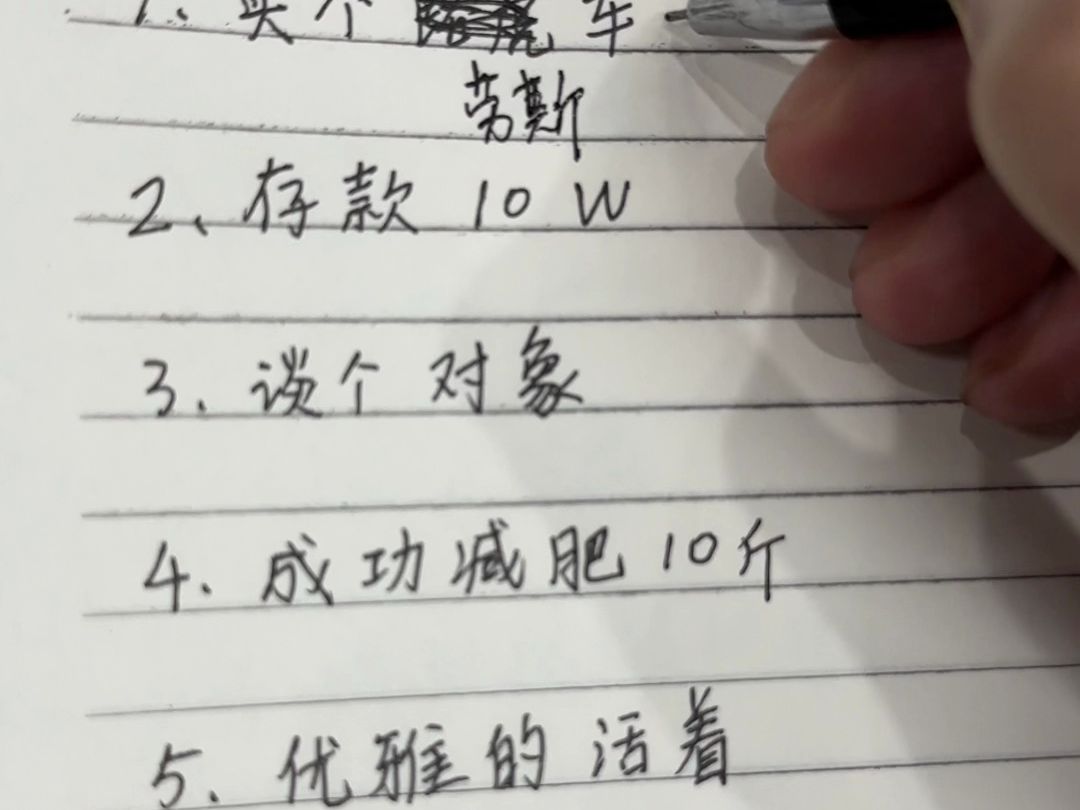 1. 买个 车
劳斯
2、存款 10 W
3. 谈个 对象
4. 成功减肥 10斤
5. 优雅的 活着